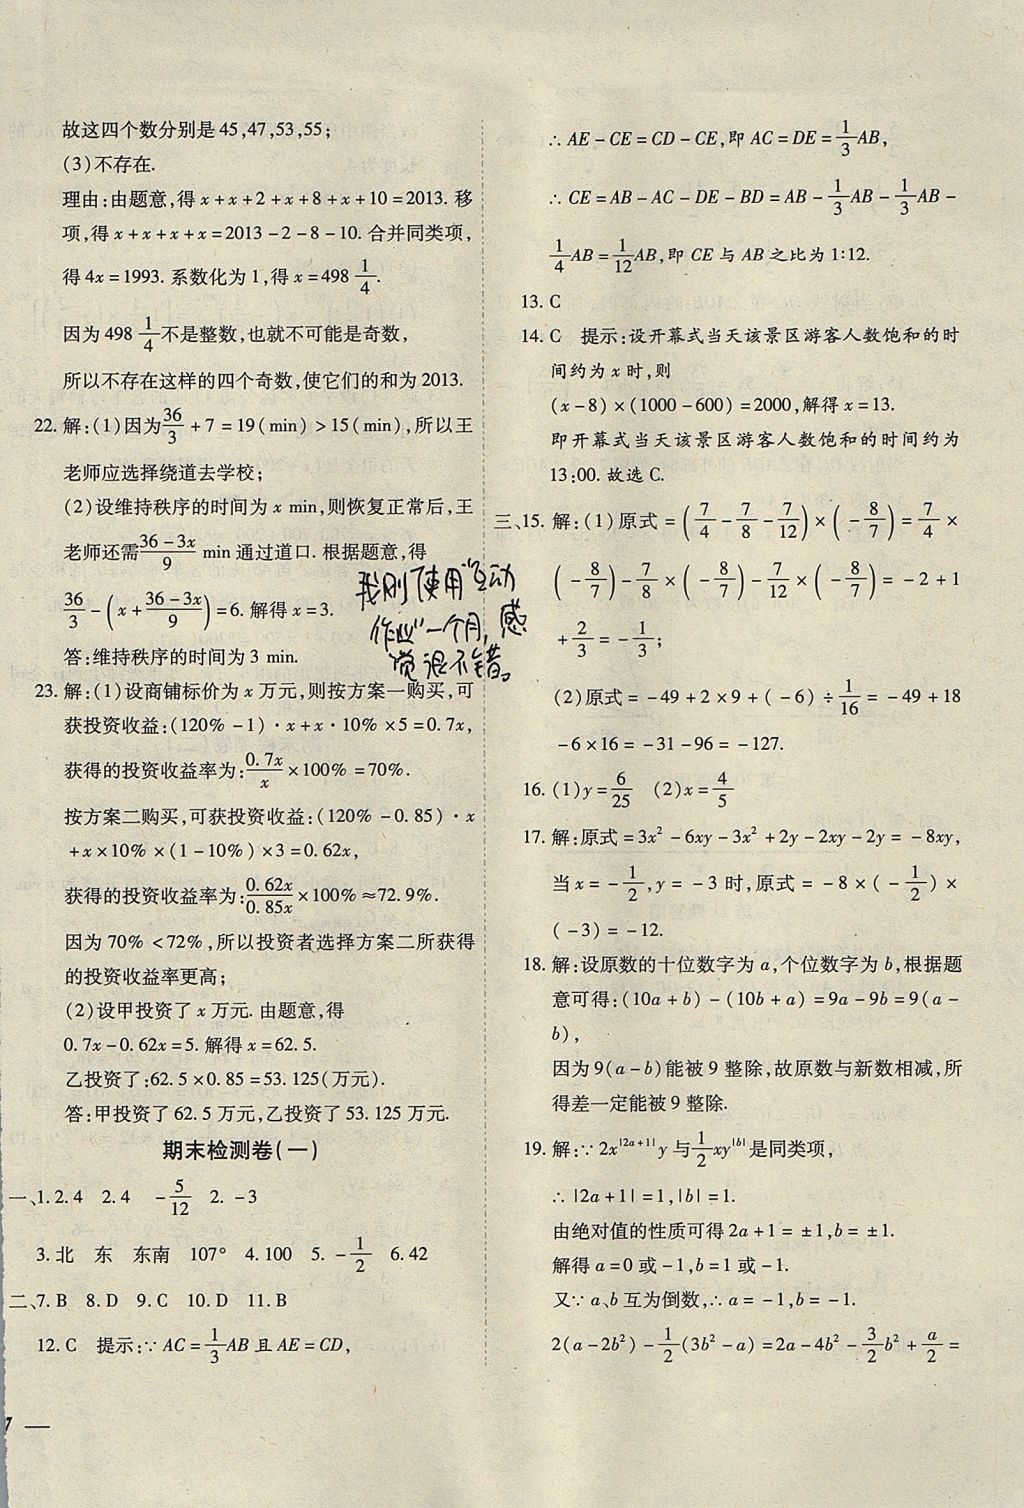 故这四个数分别是45,47,53,55;
(3)不存在.
理由:由题意,得x+x+2+x+8+x+10=2013. 移
项,得x+x+x+x=2013-2-8-10. 合并同类项,
得4x=1993. 系数化为1,得x=498 1/4.
因为498 1/4不是整数,也就不可能是奇数,
所以不存在这样的四个奇数,使它们的和为2013.
22. 解:(1)因为36/3+7=19(min)>15(min),所以王
老师应选择绕道去学校;
(2)设维持秩序的时间为x min,则恢复正常后,王
老师还需(36-3x)/9 min通过道口. 根据题意,得
36/3-(x+(36-3x)/9)=6. 解得x=3.
答:维持秩序的时间为3 min.
我刚使用“互动
作业”一个月,感
觉很不错。
23. 解:(1)设商铺标价为x万元,则按方案一购买,可
获投资收益:(120%-1)·x+x·10%×5=0.7x,
获得的投资收益率为:0.7x/x×100%=70%.
按方案二购买,可获投资收益:(120%-0.85)·x
+x×10%×(1-10%)×3=0.62x,
获得的投资收益率为:0.62x/0.85x×100%≈72.9%.
因为70%<72%,所以投资者选择方案二所获得
的投资收益率更高;
(2)设甲投资了x万元. 由题意,得
0.7x-0.62x=5. 解得x=62.5.
乙投资了:62.5×0.85=53.125(万元).
答:甲投资了62.5万元,乙投资了53.125万元.
期末检测卷(一)
一、1. 2.4 2.4 -5/12 2. -3
3. 北 东 东南 107° 4. 100 5. -1/2 6. 42
二、7. B 8. D 9. C 10. D 11. B
12. C 提示:∵AC=1/3AB且AE=CD,
∴AE-CE=CD-CE,即AC=DE=1/3AB,
∴CE=AB-AC-DE-BD=AB-1/3AB-1/3AB-
1/4AB=1/12AB,即CE与AB之比为1:12.
13. C
14. C 提示:设开幕式当天该景区游客人数饱和的时
间约为x时,则
(x-8)×(1000-600)=2000,解得x=13.
即开幕式当天该景区游客人数饱和的时间约为
13:00. 故选C.
三、15. 解:(1)原式=(7/4-7/8-7/12)×(-8/7)=7/4×
(-8/7)-7/8×(-8/7)-7/12×(-8/7)=-2+1
+2/3=-1/3;
(2)原式=-49+2×9+(-6)÷1/16=-49+18
-6×16=-31-96=-127.
16. (1)y=6/25 (2)x=4/5
17. 解:原式=3x²-6xy-3x²+2y-2xy-2y=-8xy,
当x=-1/2,y=-3时,原式=-8×(-1/2)×
(-3)=-12.
18. 解:设原数的十位数字为a,个位数字为b,根据题
意可得:(10a+b)-(10b+a)=9a-9b=9(a-
b),
因为9(a-b)能被9整除,故原数与新数相减,所
得差一定能被9整除.
19. 解:∵2x^|2a+1|y与1/2xy^|b|是同类项,
∴|2a+1|=1,|b|=1.
由绝对值的性质可得2a+1=±1,b=±1.
解得a=0或-1,b=1或-1.
又∵a、b互为倒数,∴a=-1,b=-1.
2(a-2b²)-1/2(3b²-a)=2a-4b²-3/2b²+a/2=
7 —